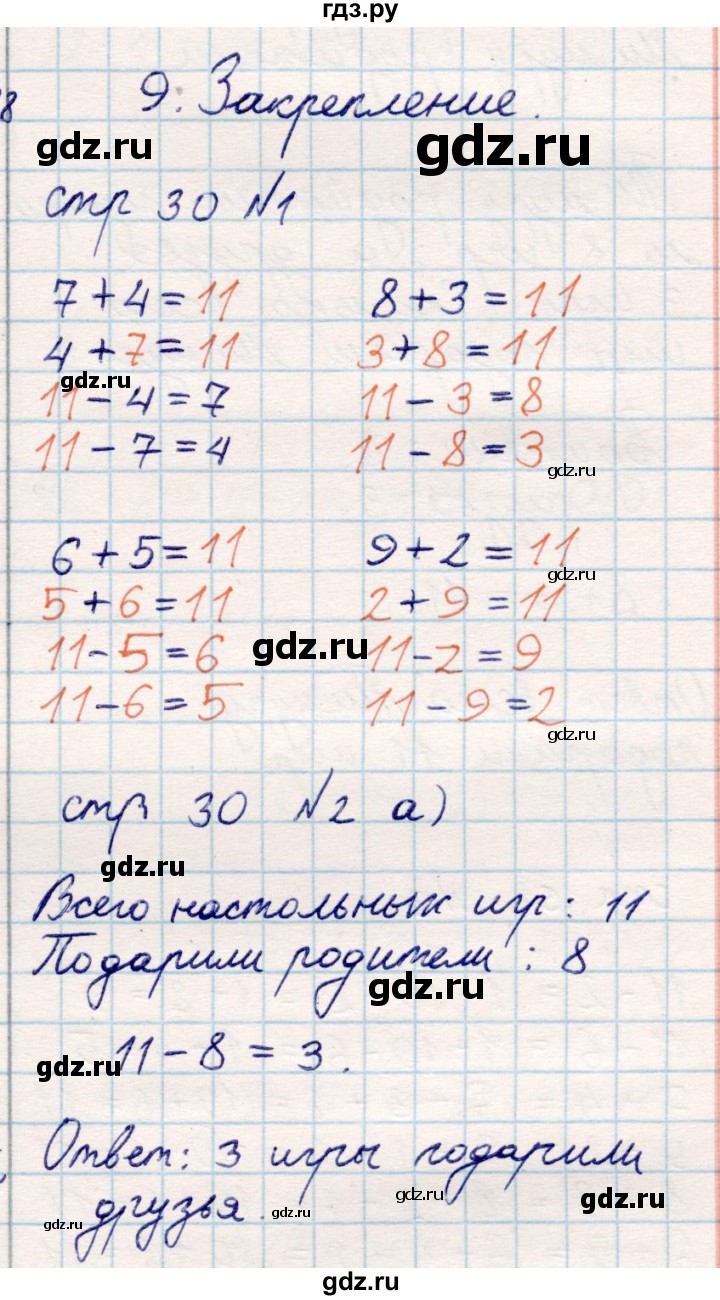 гдз.ру
9. Закрепление.
gdz.ru
gdz.ru
стр 30 №1
7 + 4 = 11
8 + 3 = 11
4 + 7 = 11
3 + 8 = 11
gdz.ru
11 - 4 = 7
11 - 3 = 8
11 - 7 = 4
11 - 8 = 3
gdz.ru
6 + 5 = 11
9 + 2 = 11
gdz.ru
5 + 6 = 11
2 + 9 = 11
11 - 5 = 6
gdz.ru
11 - 2 = 9
11 - 6 = 5
11 - 9 = 2
gdz.ru
стр 30 №2 а)
gdz.ru
Всего настольных игр: 11
Подарили родители: 8
gdz.ru
11 - 8 = 3.
gdz.ru
Ответ: 3 игры подарили
друзья.
gdz.ru
gdz.ru
gdz.ru
gdz.ru
gdz.ru